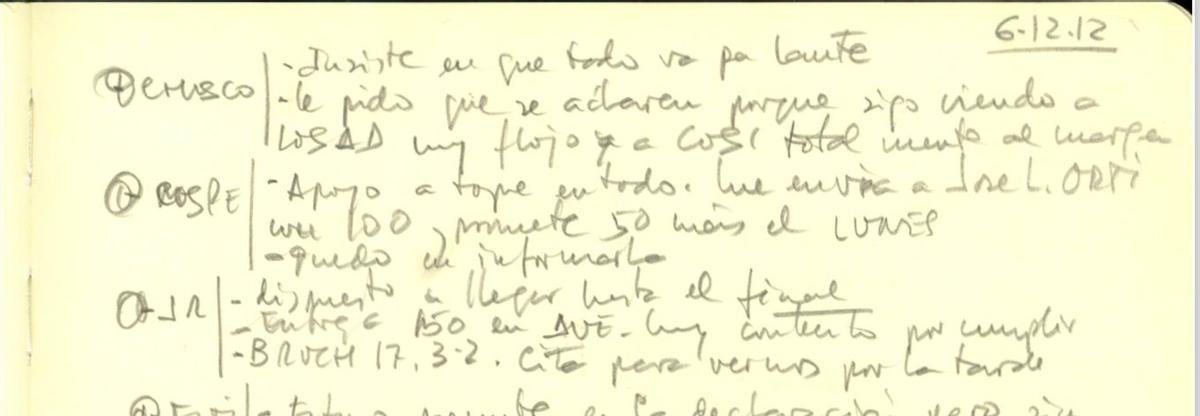 6-12-12
CHUSCO - Insiste en que todo va pa lante
- le pido que se aclaren porque sigo viendo a
COSAD muy flojo y a COSI totalmente al margen
COSPE - Apoyo a tope en todo. Me envía a Jose L. ORTI
con 100, promete 50 más el LUNES
- quedo en informarla
JR - dispuesto a llegar hasta el final
- Entrega 150 en AVE. muy contento por cumplir
- BRUCH 17, 3-2. Cita para vernos por la tarde
en la declaración pero